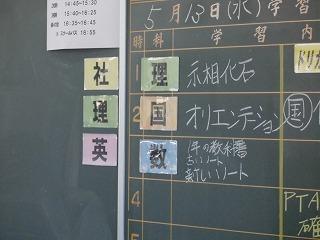 14:45~15:30
15:40~16:25
16:35~16:45
スクールバス 16:55
5月13日(水)学習
時 科 学習内
社 1 理 示相化石
理 2 国 オリエンテーション 国
英 3 数 1年の教科書
古いノート
新しいノート
4
5
PTA